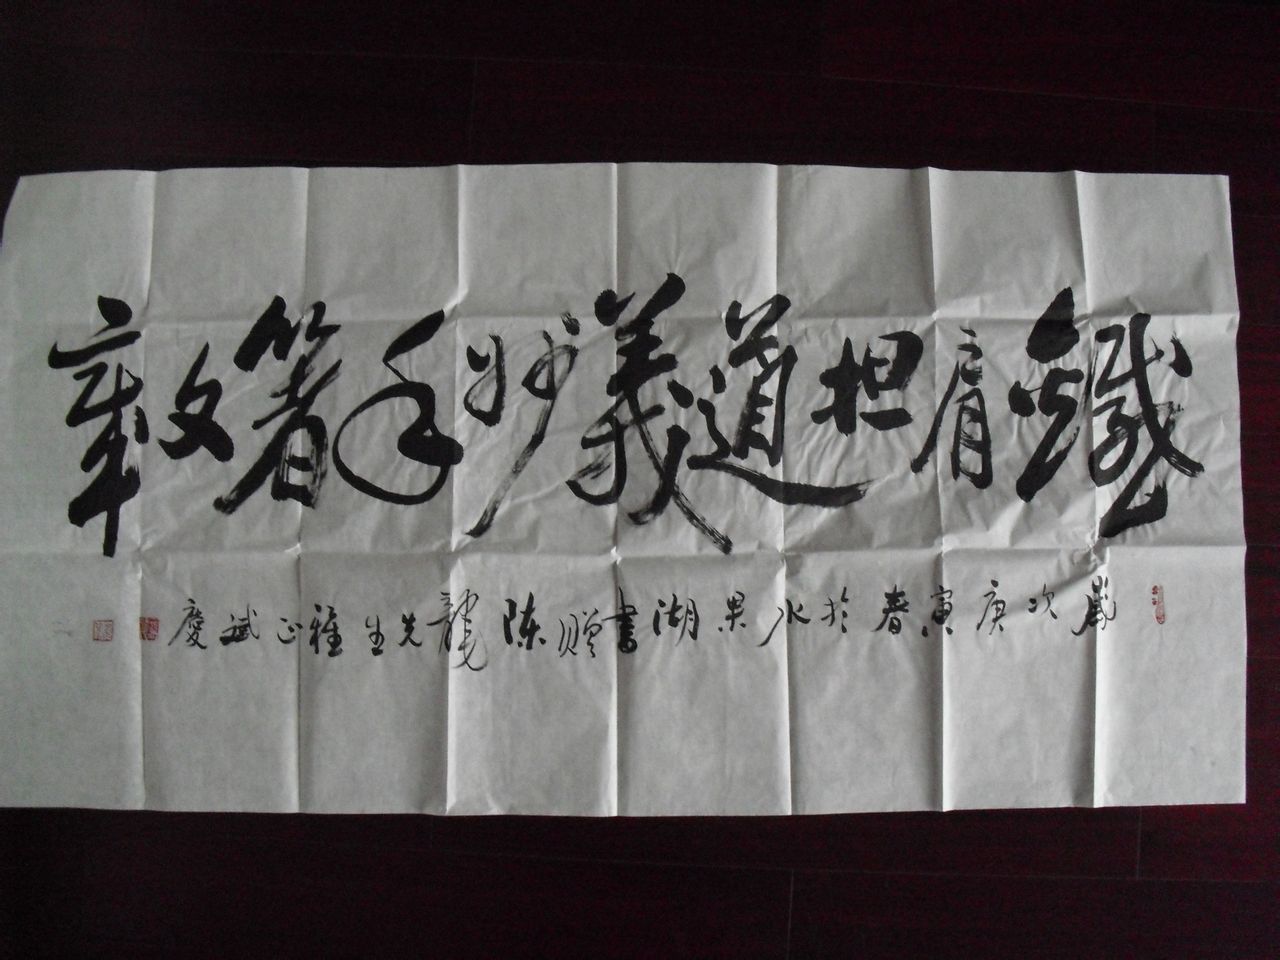 鐵肩担道義妙手著文章
歲次庚寅春於水果湖書贈陈龍先生雅正斌慶